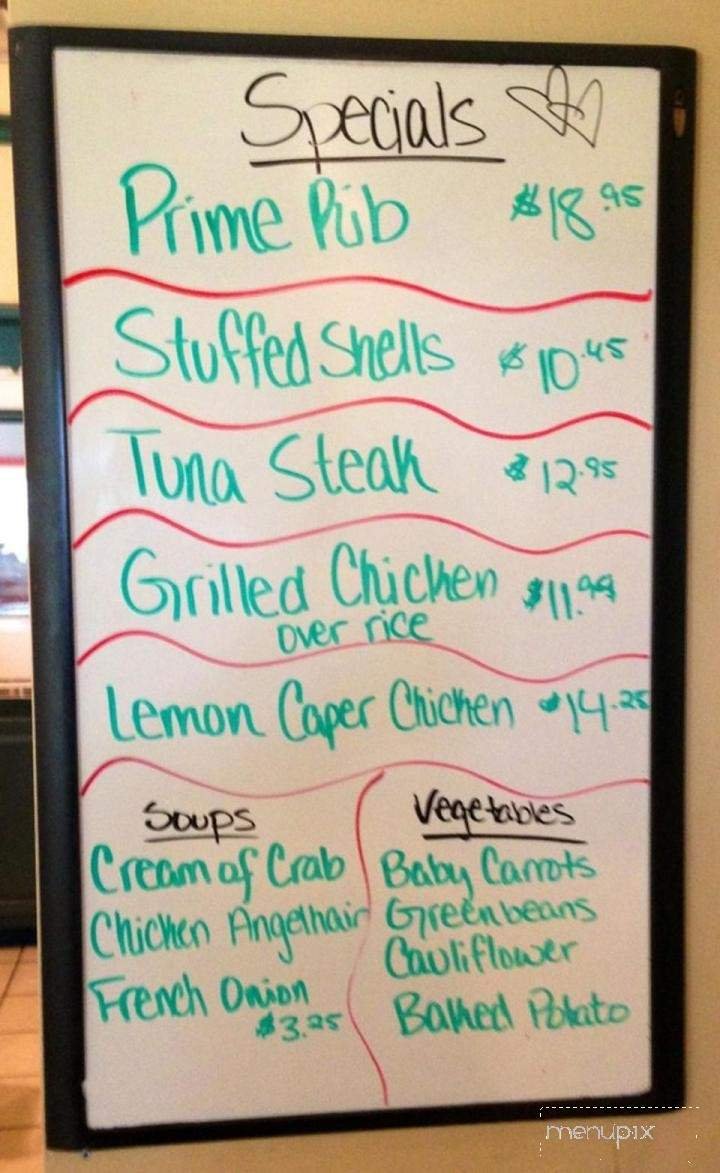 Specials
Prime Rib $18.95
Stuffed Shells $10.45
Tuna Steak $12.95
Grilled Chicken $11.99
over rice
Lemon Caper Chicken $14.25
Soups
Cream of Crab
Chicken Angelhair
French Onion
$3.25
Vegetables
Baby Carrots
Greenbeans
Cauliflower
Baked Potato
menupix